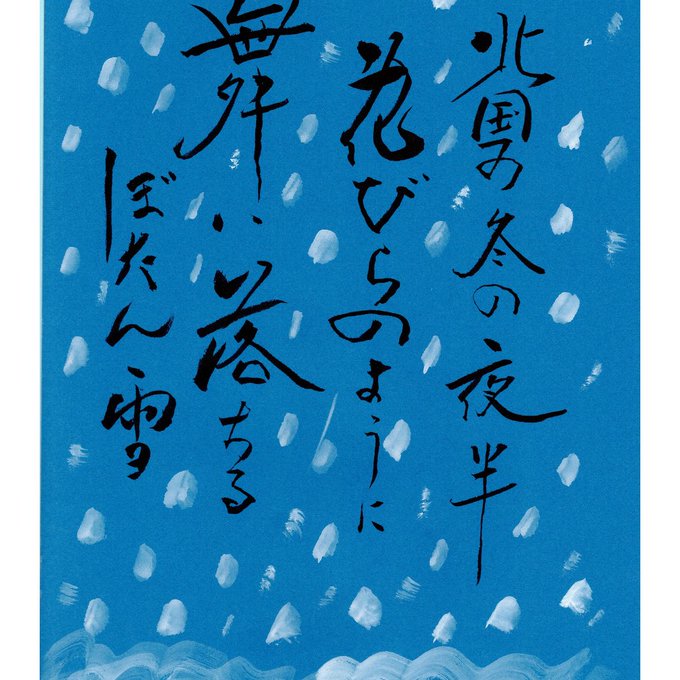 北国の冬の夜半
花びらのように
舞い落ちる
ぼたん雪